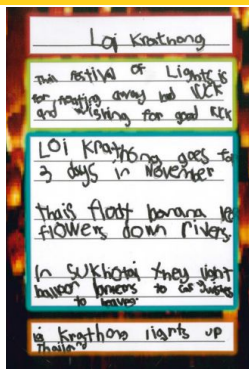 Loi Krathong
This festival of Lights is
for floating away bad luck
and wishing for good luck
LOi Krathong goes for
3 days in November
Thais float banana
flowers down rivers.
In Sukhotai they light
balloon lanterns to
to
Loi Krathong lights up
Thailand